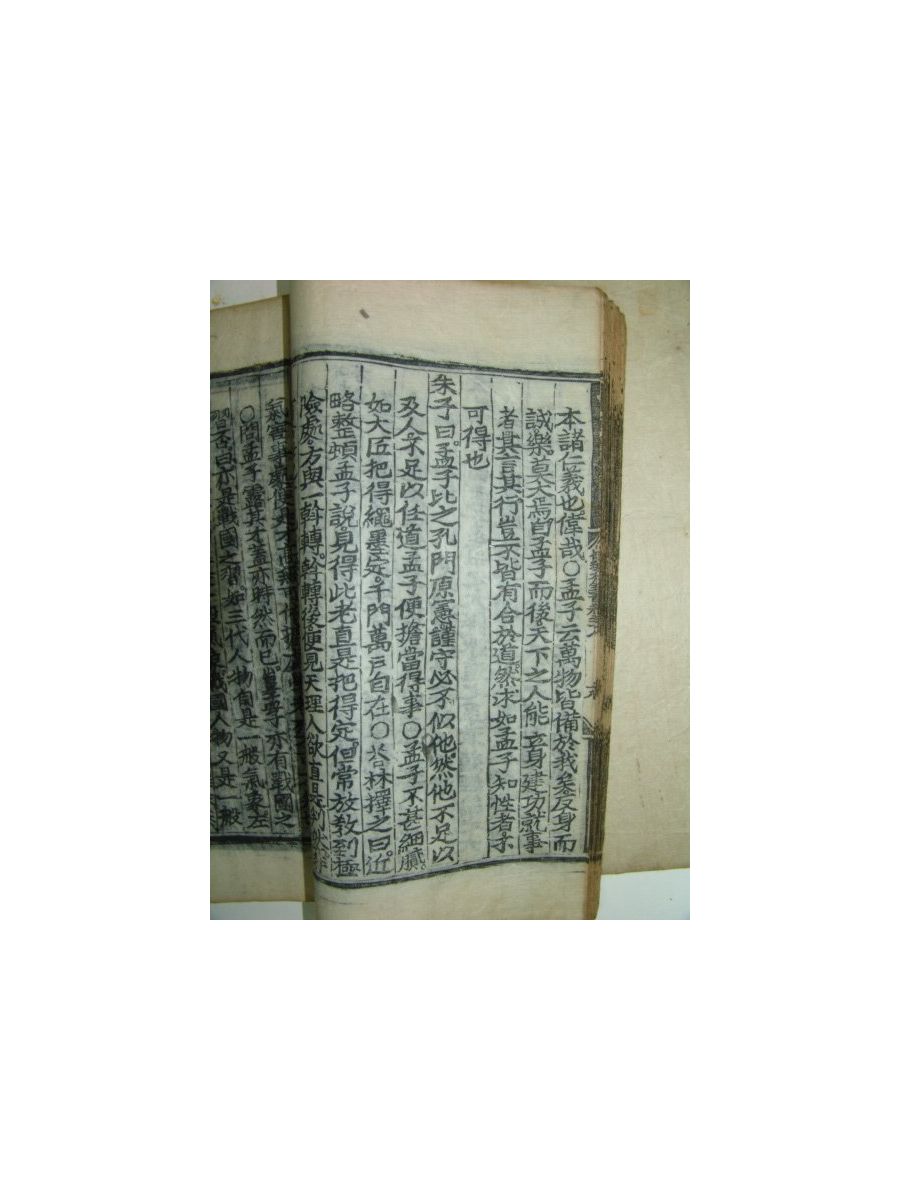 本諸仁義也偉哉○孟子云萬物皆備於我矣反身而
誠樂莫大焉自孟子而後天下之人能立身建功就事
者其言其行豈不皆有合於道然求如孟子知性者未
可得也
朱子曰孟子比之孔門原憲謹守必不似他然他不足以
及人不足以任道孟子便擔當得事○孟子不甚細膩
如大匠把得繩墨定千門萬戶自在○答林擇之曰近
略整頓孟子說見得此老直是把得定但常放教到極
險處方與一斡轉斡轉後便見天理人欲直是判然
○問孟子露其才蓋亦時然而已豈孟子亦有戰國之
習否曰亦是戰國之習如三代人物自是一般氣象左
國人物又是一般